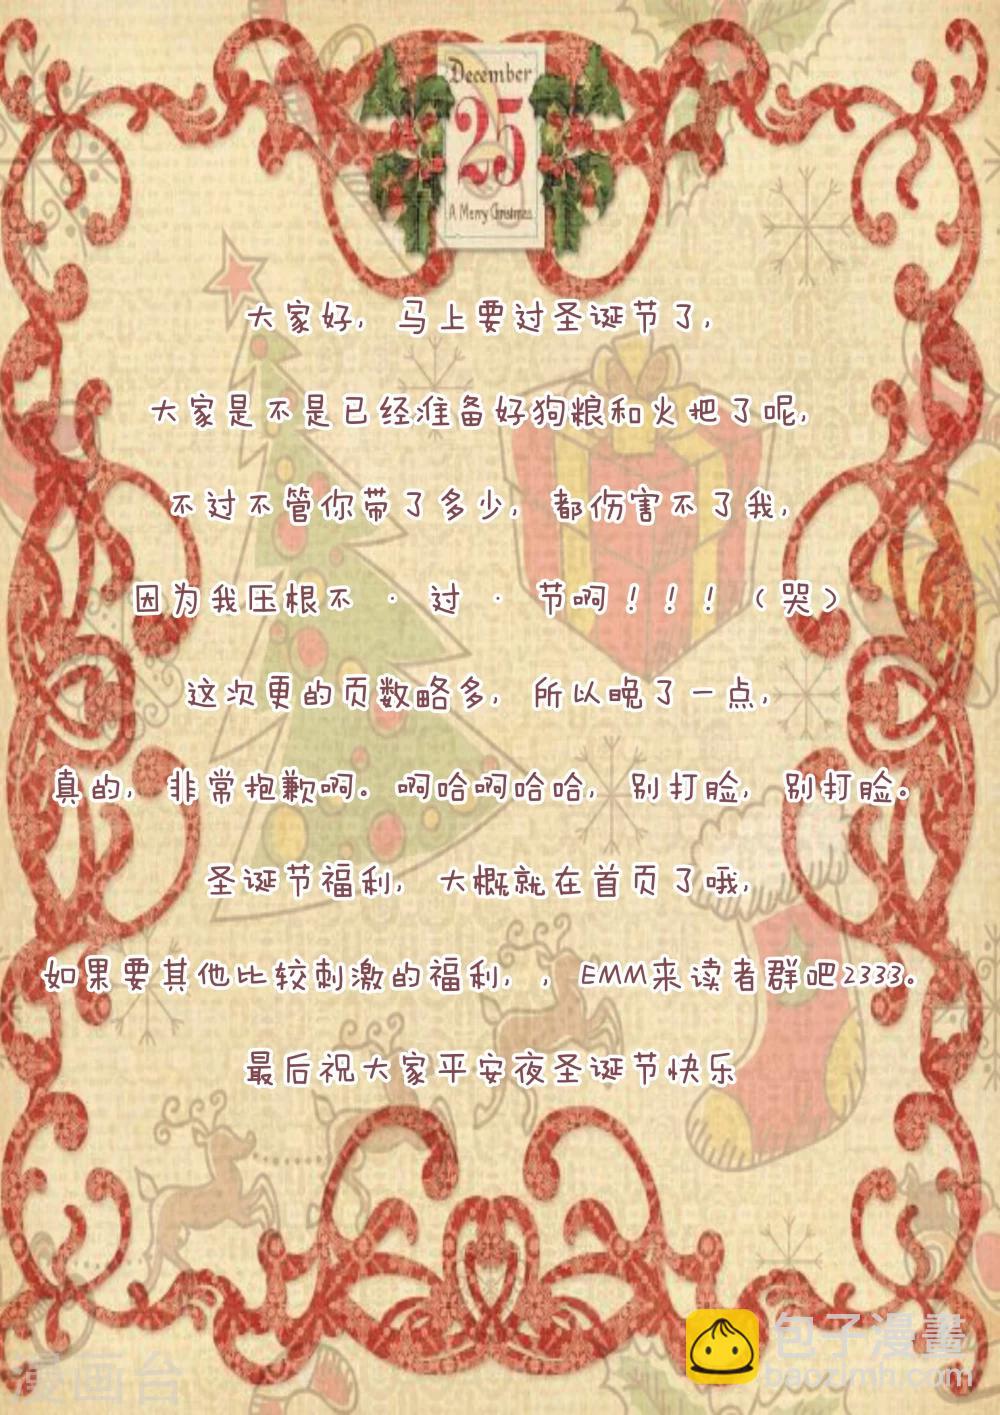 December
25
A Merry Christmas
大家好，马上要过圣诞节了，
大家是不是已经准备好狗粮和火把了呢，
不过不管你带了多少，都伤害不了我，
因为我压根不·过·节啊！！！（哭）
这次更的页数略多，所以晚了一点，
真的，非常抱歉啊。啊哈啊哈哈，别打脸，别打脸。
圣诞节福利，大概就在首页了哦，
如果要其他比较刺激的福利，，EMM来读者群吧2333。
最后祝大家平安夜圣诞节快乐
包子漫畫
baozimh.com
漫画台